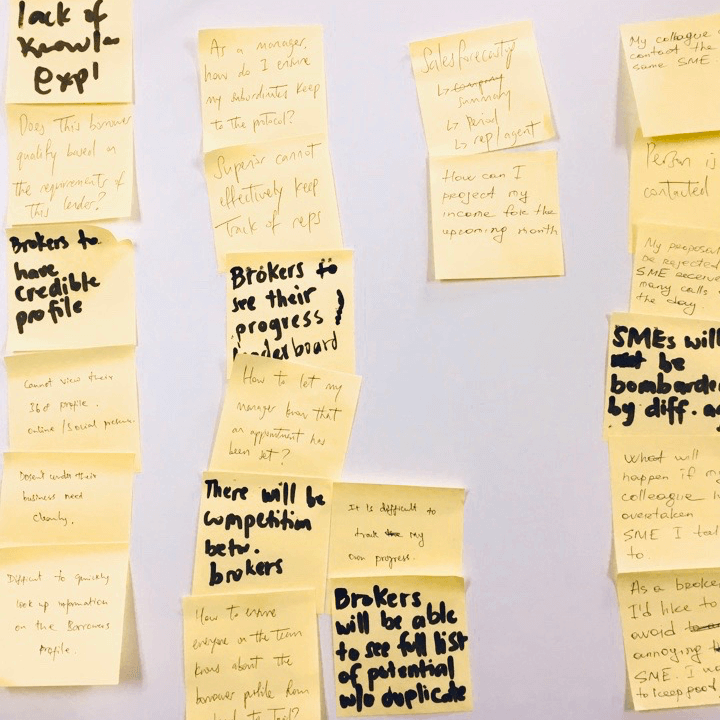 lack of
Knowle
expl
Does this borrower
qualify based on
the requirements of
this lender?
Brokers to
have
credible
profile
Cannot view their
360 profile.
online / social
business need
Clearly.
Difficult to quickly
look up information
on the Borrowers
Profile.
As a manager,
how do I ensure
my subordinates keep
to the protocol?
Superior cannot
effectively keep
Track of reps
Brokers to
see their
progress /
leaderboard
How to let my
manager know that
an appointment has
been set?
There will be
competition
betw.
brokers
How to ensure
everyone on the team
knows about the
borrower profile from
It is difficult to
track my
own progress.
Brokers
will be able
to see full list
of potential
w/o duplicate
Sales forecasting
↳ Company
summary
↳ Period
↳ rep/agent
How can I
project my
income for the
upcoming month
My collogue
contact the
same SME
Person is
contacted
My proposal
be rejected
SME receive
many calls
the day.
SMEs will
not be
bombarde
by diff. ag
What will
happen if my
colleague h
overtaken
SME I tal
to.
As a broke
I'd like to
avoid
annoying
SME. I wa
to keep post